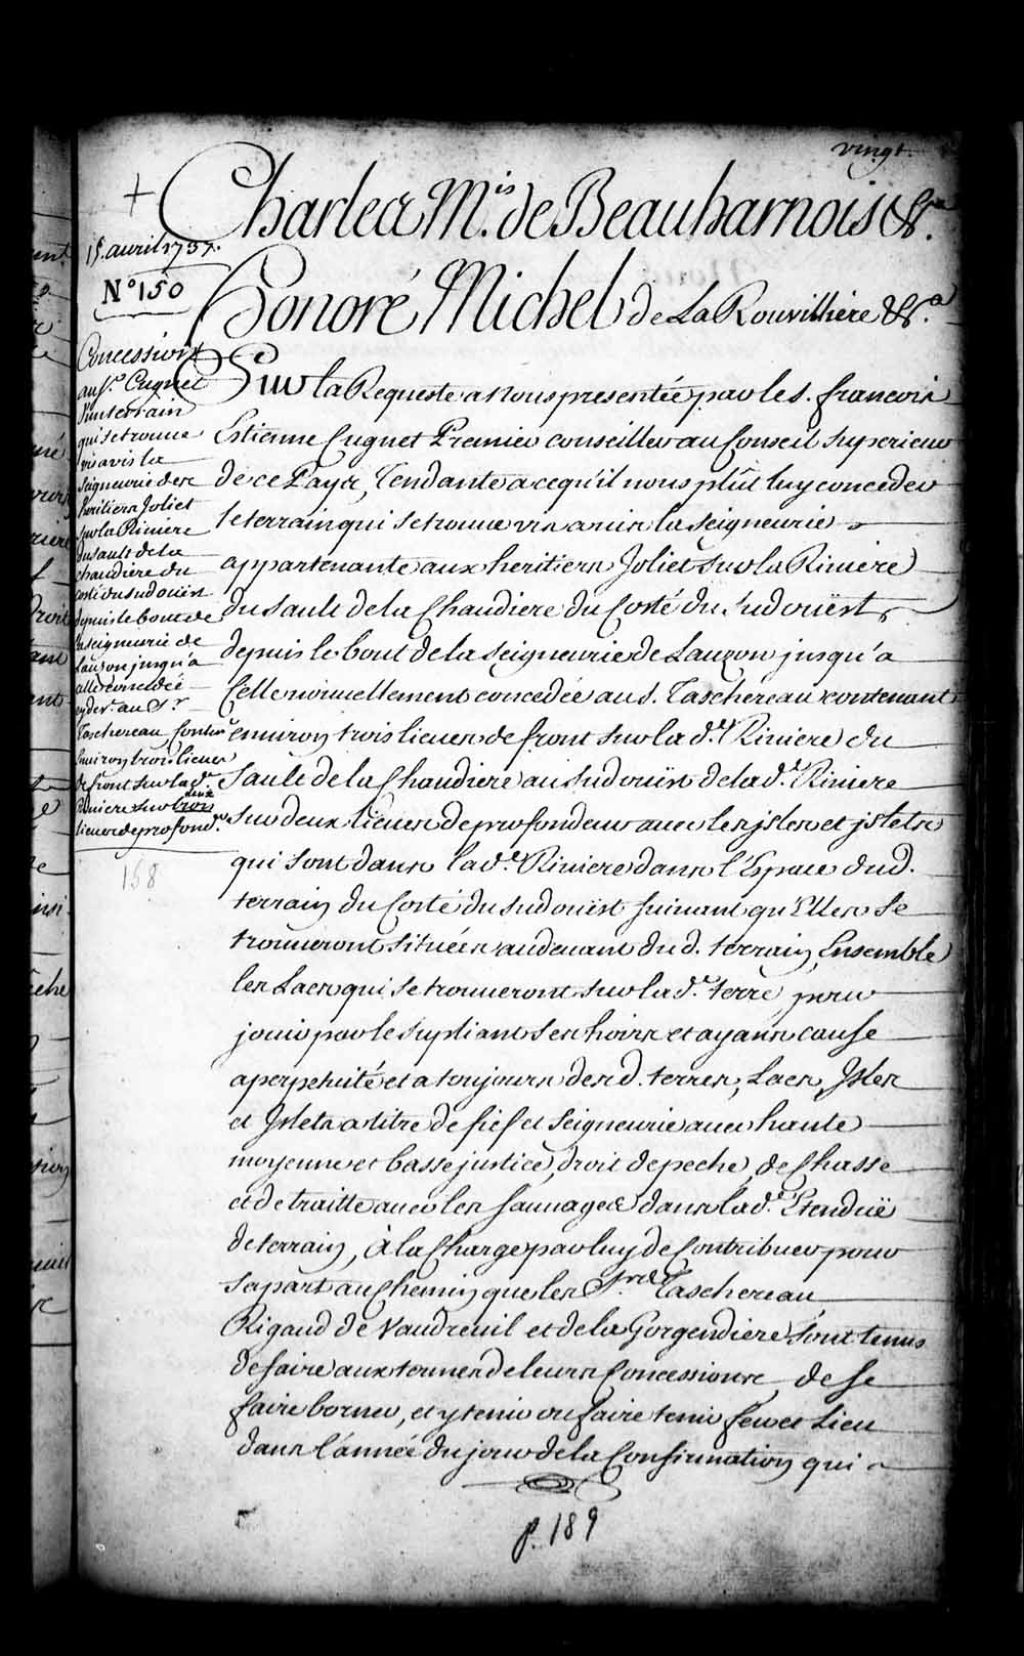 vingt.
Charles M.is de Beauharnois &.ra
15. avril 1737.
N.o 150
Honoré Michel de La Rouvilliere &.a
Concession
au S.r Cugnet
d'un terrain
qui se trouve
vis a vis la
Seigneurie des
heritiers Joliet
sur la Riviere
du sault de la
chaudiere du
costé du sud ouest
depuis le bout de
la seigneurie de
Lauzon jusqu'a
celle concedée
au S.r
Taschereau, conten.t
Environ trois lieues
de front sur la d.e
Riviere sur trois deux
lieues de profond.r
158
Sur la Requeste a Nous presentée par le s. francois
Estienne Cugnet Premier conseiller au Conseil Superieur
de ce Pays, Tendante a ce qu'il nous plût luy conceder
le terrain qui se trouve vis a vis la seigneurie
appartenante aux heritiers Joliet sur la Riviere
du Sault de la Chaudiere du Costé du Sudoüest,
depuis le bout de la seigneurie de Lauzon jusqu'a
Celle nouvellement concedée au s. Taschereau contenant
environ trois lieues de front sur la d.e Riviere du
Sault de la Chaudiere au Sudoüest de la d.e Riviere
sur deux lieues de profondeur avec les isles et islets
qui sont dans la d.e Riviere dans l'Espace dud.
terrain du Costé du sudoüest suivant qu'Elles se
trouveront situées audevant du d. terrain, Ensemble
les Lacs qui se trouveront sur la d.e terre, pour
jouir par le supliant ses hoirs et ayans cause
a perpetuité et a toujours des d. terres, Lacs, Isles
et Islets a titre de fief et Seigneurie avec haute
moyenne et basse justice, droit de peche, de Chasse
et de traitte avec les Sauvages dans la d.e Etenduë
de terrain, à la Charge par luy de Contribuer pour
sa part au Chemin que les S.rs Taschereau,
Rigaud de Vaudreuil et de la Gorgendiere sont tenus
de faire aux termes de leurs Concessions, de se
faire borner, et y tenir ou faire tenir feu et Lieu
dans l'année du jour de la Confirmation qui
p. 189